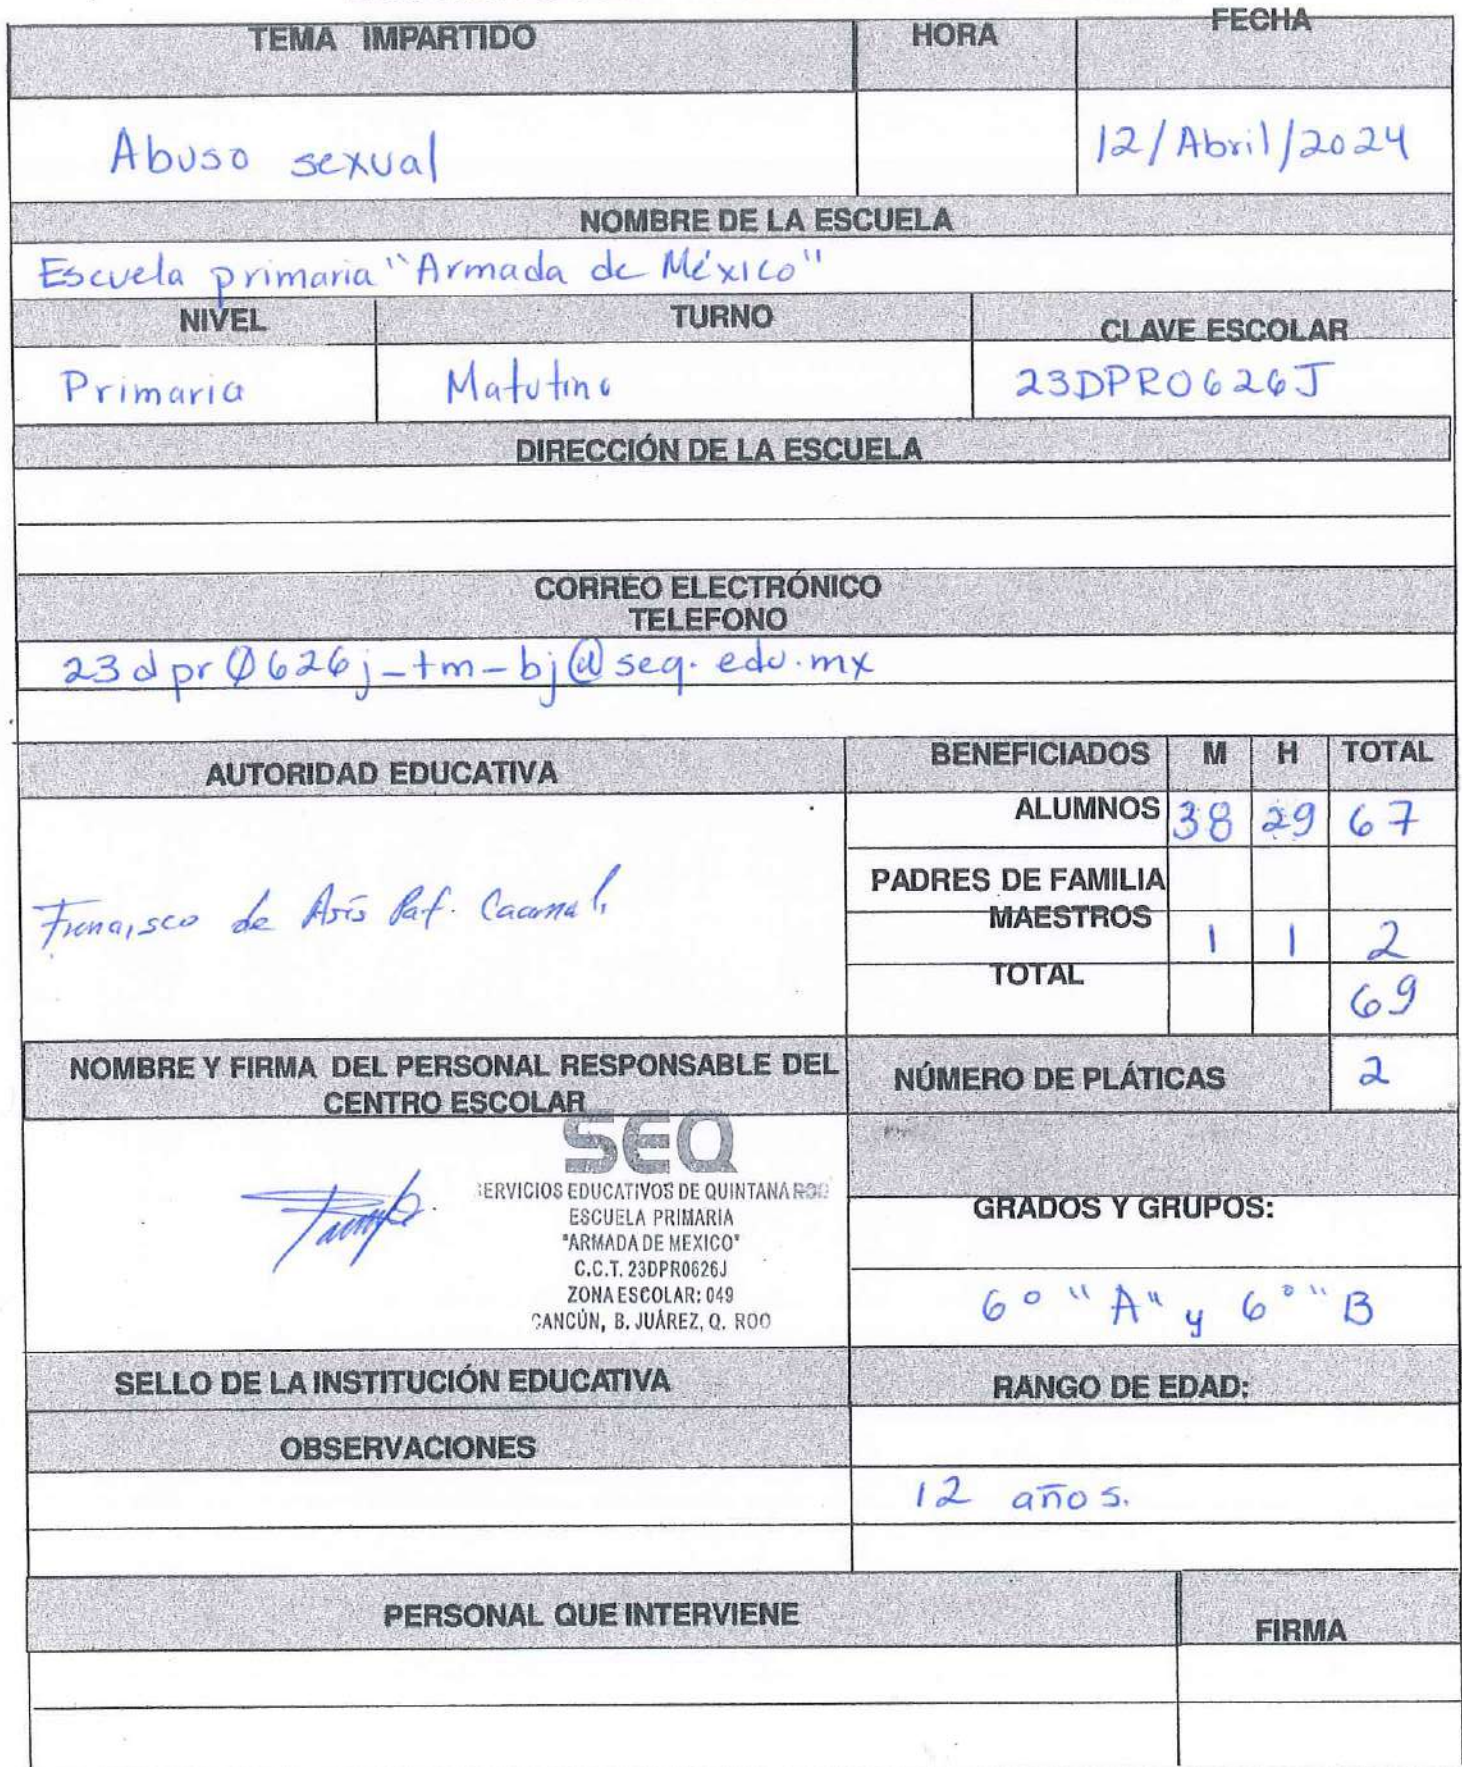 TEMA IMPARTIDO HORA FECHA
Abuso sexual 12/Abril/2024
NOMBRE DE LA ESCUELA
Escuela primaria "Armada de México"
NIVEL TURNO CLAVE ESCOLAR
Primaria Matutino 23DPR0626J
DIRECCIÓN DE LA ESCUELA
CORREO ELECTRÓNICO
TELEFONO
23dpr0626j_tm_bj@seq.edu.mx
AUTORIDAD EDUCATIVA BENEFICIADOS M H TOTAL
ALUMNOS 38 29 67
PADRES DE FAMILIA
Francisco de Asís
MAESTROS 1 1 2
TOTAL 69
NOMBRE Y FIRMA DEL PERSONAL RESPONSABLE DEL
CENTRO ESCOLAR
NÚMERO DE PLÁTICAS 2
SEQ
SERVICIOS EDUCATIVOS DE QUINTANA ROO
ESCUELA PRIMARIA
"ARMADA DE MEXICO"
C.C.T. 23DPR0626J
ZONA ESCOLAR: 049
CANCÚN, B. JUÁREZ, Q. ROO
GRADOS Y GRUPOS:
6° "A" y 6° "B
SELLO DE LA INSTITUCIÓN EDUCATIVA RANGO DE EDAD:
OBSERVACIONES
12 años.
PERSONAL QUE INTERVIENE FIRMA